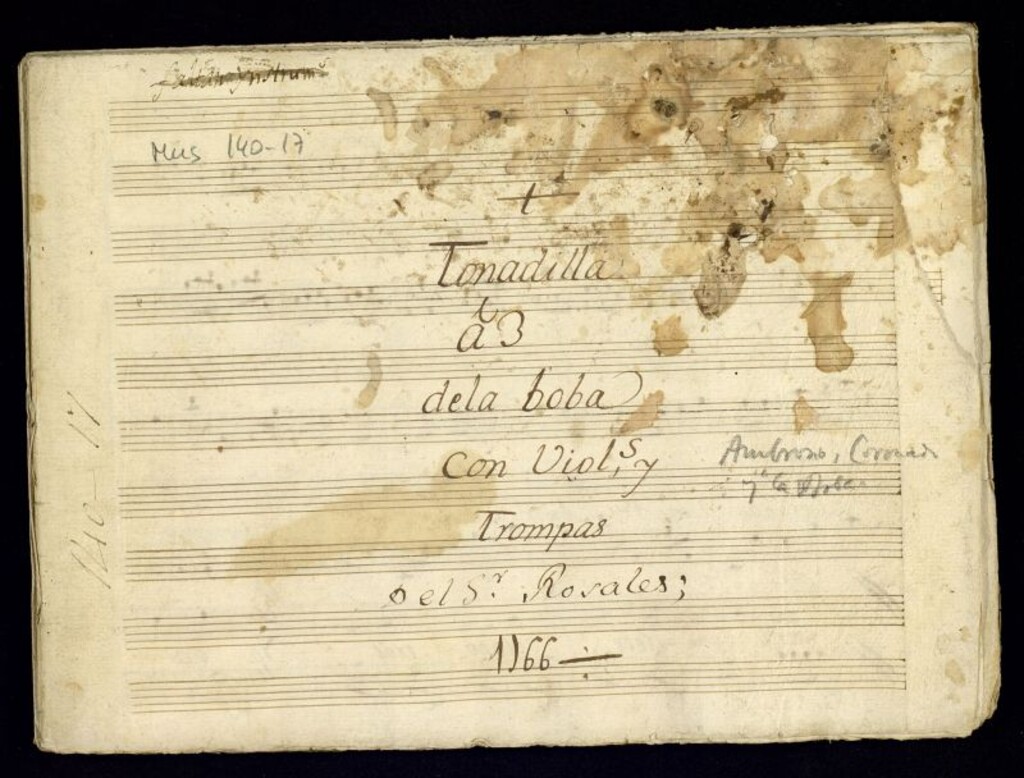 Mus 140-17
+
Tonadilla
à 3
dela boba
con Viol.s y
Trompas
Del Sr. Rosales;
1766
Ambrosio, Coronado
y la
140-17